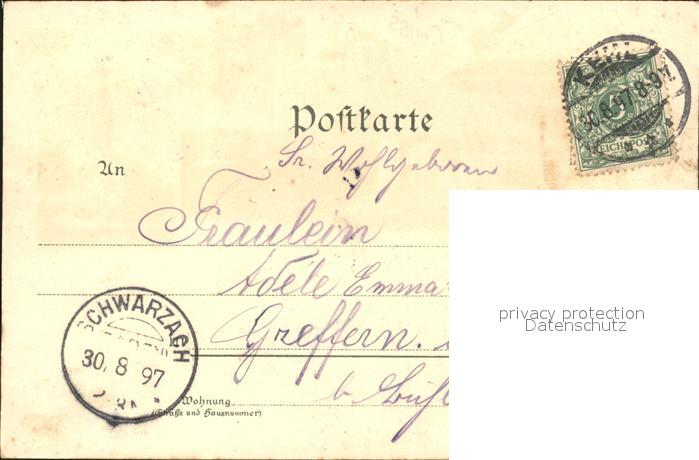 Postkarte
An
Sr. Wohlgeboren
Fräulein
Adele Emma
Greffern.
b. Bühl
Wohnung
(Straße und Hausnummer)
SCHWARZACH
30. 8 97
KEHL
30.8.97.8-9V.
REICHSPOST
5
privacy protection
Datenschutz